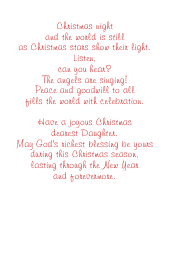 Christmas night
and the world is still
as Christmas stars show their light.
Listen,
can you hear?
The angels are singing!
Peace and goodwill to all
fills the world with celebration.

Have a joyous Christmas
dearest Daughter.
May God's richest blessing be yours
during this Christmas season,
lasting through the New Year
and forevermore.